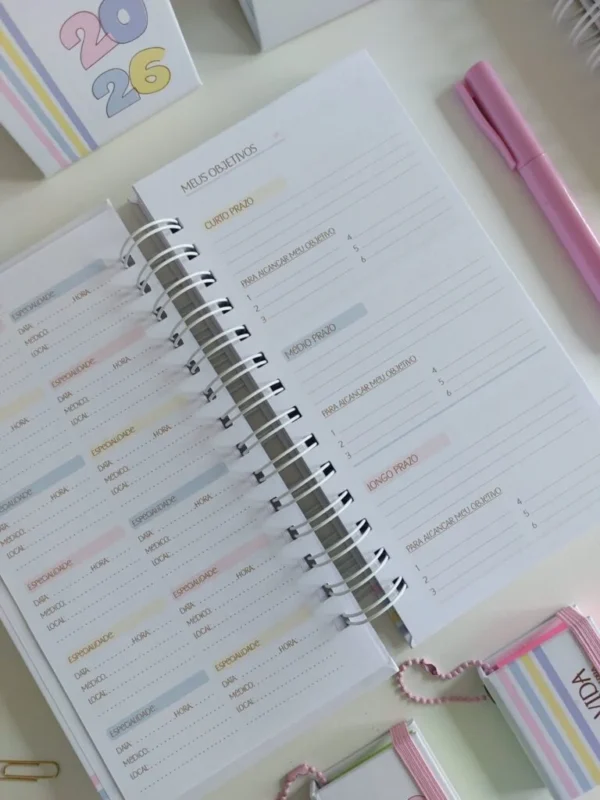 20
26
ESPECIALIDADE:
DATA HORA
MÉDICO:
LOCAL:
ESPECIALIDADE:
DATA HORA
MÉDICO:
LOCAL:
ESPECIALIDADE:
DATA HORA
MÉDICO:
LOCAL:
ESPECIALIDADE:
DATA HORA
MÉDICO:
LOCAL:
ESPECIALIDADE:
DATA HORA
MÉDICO:
LOCAL:
ESPECIALIDADE:
DATA HORA
MÉDICO:
LOCAL:
ESPECIALIDADE:
DATA HORA
MÉDICO:
LOCAL:
ESPECIALIDADE:
DATA HORA
MÉDICO:
LOCAL:
ESPECIALIDADE:
DATA HORA
MÉDICO:
LOCAL:
ESPECIALIDADE:
DATA HORA
MÉDICO:
LOCAL:
MEUS OBJETIVOS
CURTO PRAZO
PARA ALCANÇAR MEU OBJETIVO
1 4
2 5
3 6
MÉDIO PRAZO
PARA ALCANÇAR MEU OBJETIVO
1 4
2 5
3 6
LONGO PRAZO
PARA ALCANÇAR MEU OBJETIVO
1 4
2 5
3 6
VIDA